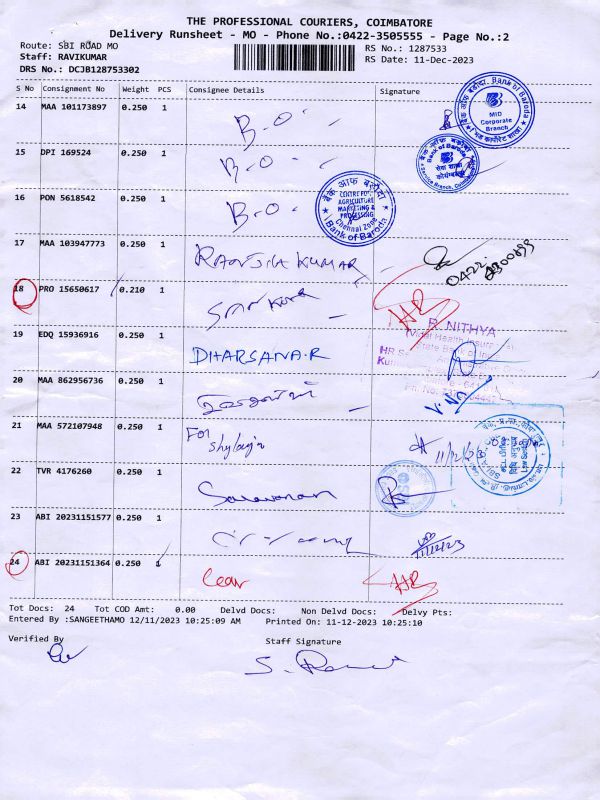 THE PROFESSIONAL COURIERS, COIMBATORE
Delivery Runsheet - MO - Phone No.:0422-3505555 - Page No.:2
Route: SBI ROAD MO
RS No.: 1287533
Staff: RAVIKUMAR
RS Date: 11-Dec-2023
DRS No.: DCJB128753302
S No Consignment No Weight PCS Consignee Details Signature
14 MAA 101173897 0.250 1 B.O.
Bank of Baroda
MID
Corporate
Branch
15 DPI 169524 0.250 1 B.O.
Bank of Baroda
16 PON 5618542 0.250 1 B.O.
बैंक ऑफ बड़ौदा
CENTRE FOR
AGRICULTURE
MARKETING &
PROCESSING
Chennai Zone
Bank of Baroda
17 MAA 103947773 0.250 1 KUMAR
0422
18 PRO 15650617 0.210 1
HR
R. NITHYA
State Bank of
19 EDQ 15936916 0.250 1 DHARSANA.R
20 MAA 862956736 0.250 1
21 MAA 572107948 0.250 1 For
Shylaja
11/12/23
22 TVR 4176260 0.250 1 Saravanan
23 ABI 20231151577 0.250 1
11/12/23
24 ABI 20231151364 0.250 1
HR
Tot Docs: 24 Tot COD Amt: 0.00 Delvd Docs: Non Delvd Docs: Delvy Pts:
Entered By :SANGEETHAMO 12/11/2023 10:25:09 AM Printed On: 11-12-2023 10:25:10
Verified By
Staff Signature